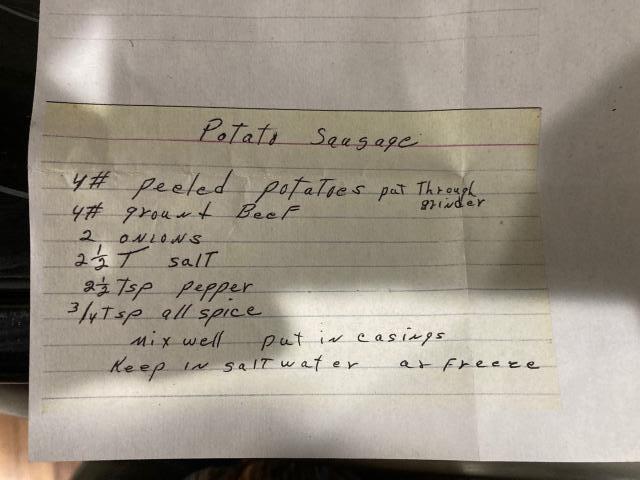 Potato Sausage
4# peeled potatoes put Through
grinder
4# ground Beef
2 onions
2 1/2 T salt
2 1/2 Tsp pepper
3/4 Tsp all spice
Mix well put in casings
Keep in salt water or Freeze